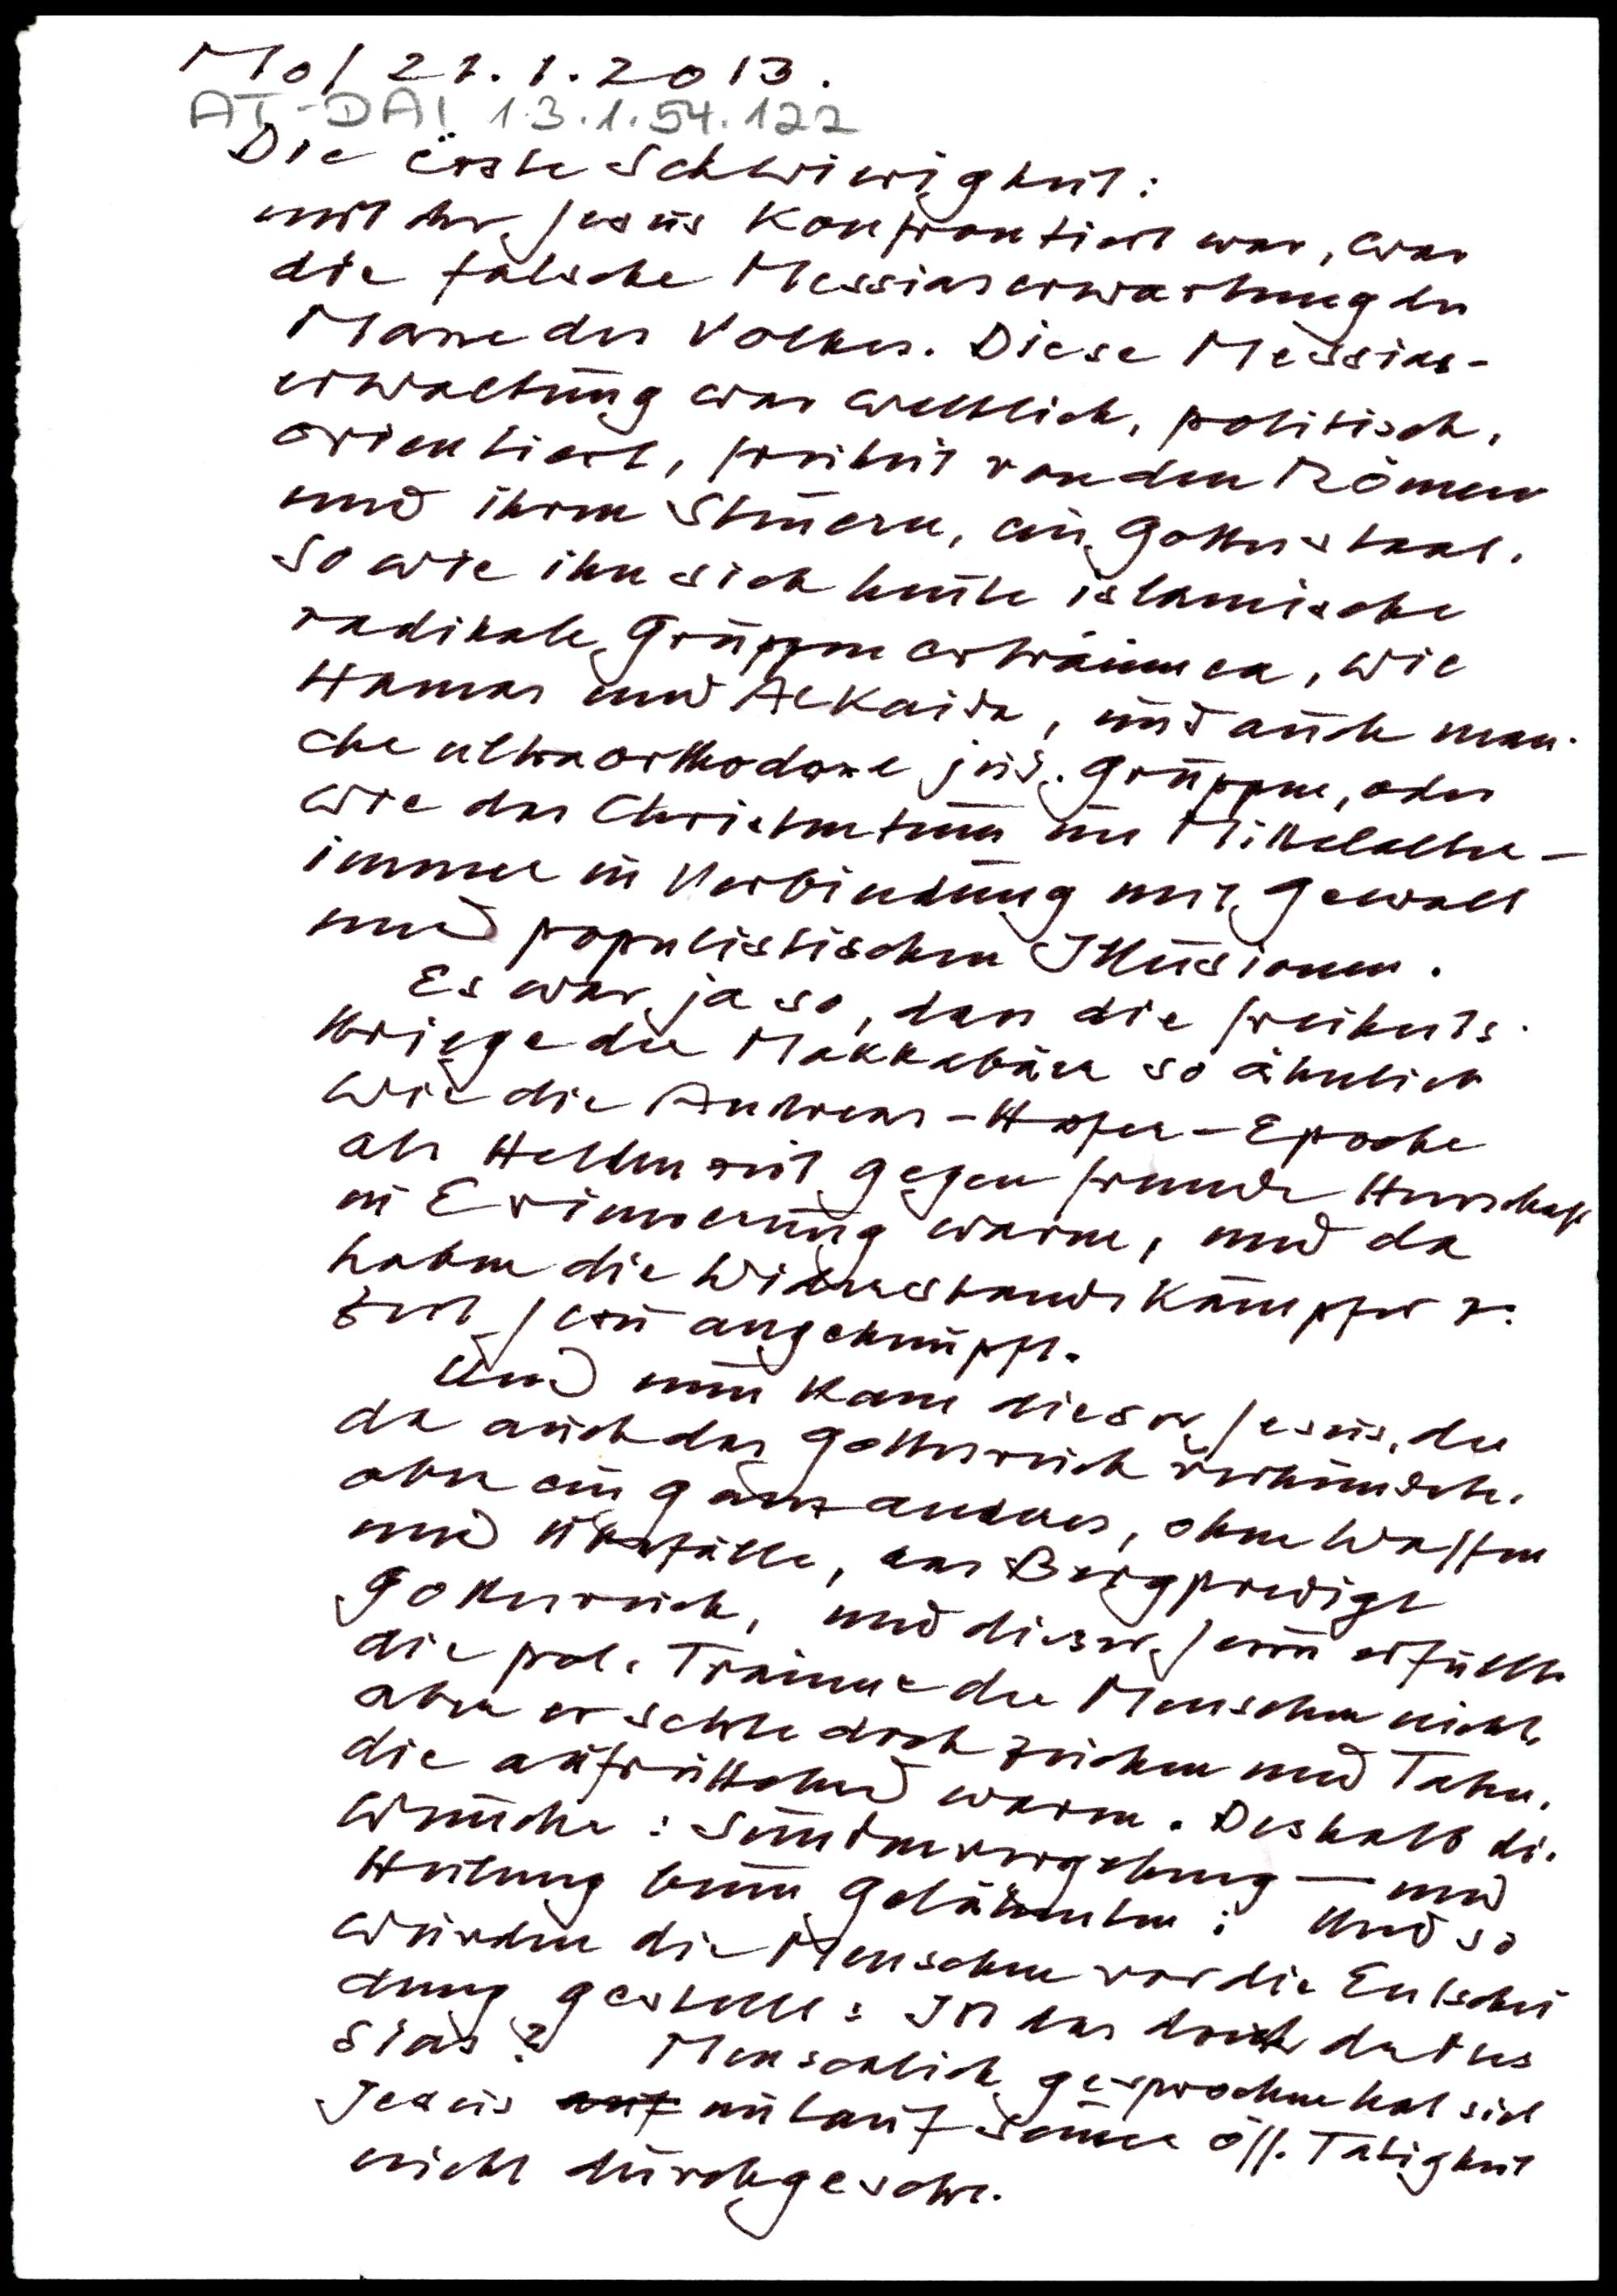 Mo/ 21.1.2013.
AT-DAI 1.3.1.54.122
Die erste Schwierigkeit:
mit der Jesus konfrontiert war, war
die falsche Messiaserwartung der
Masse des Volkes. Diese Messias-
erwartung war weltlich, politisch,
orientiert, freiheit von den Römern
und ihren Steuern, ein Gottesstaat.
So wie ihn sich heute islamische
radikale Gruppen erträumen, wie
Hamas und AlKaida, und auch man-
che ultraorthodoxe jüd. Gruppen, oder
wie das Christentum im Mittelalter –
immer in Verbindung mit Gewalt
und populistischen Illusionen.
Es war ja so, dass die freiheits-
kriege der Makkabäer so ähnlich
wie die Andreas-Hofer-Epoche
als Heldenzeit gegen fremde Herrschaft
in Erinnerung waren, und da
haben die Widerstandskämpfer z.
Zeit Jesu angeknüpft.
Und nun kam dieser Jesus, der
da auch das Gottesreich verkündete,
aber ein ganz anderes, ohne Waffen
und Überfälle, das Bergpredigt
Gottesreich, und dieser Jesus erfüllte
die pol. Träume der Menschen nicht,
aber er setzte doch Zeichen und Taten,
die aufrüttelnd waren. Deshalb die
Wunder: Sündenvergebung – und
Heilung beim Gelähmten: Und so
wurden die Menschen vor die Entschei
dung gestellt: Ist das doch der Mes
sias? Menschlich gesprochen hat sich
Jesus auf im Lauf seiner öff. Tätigkeit
nicht durchgesetzt.